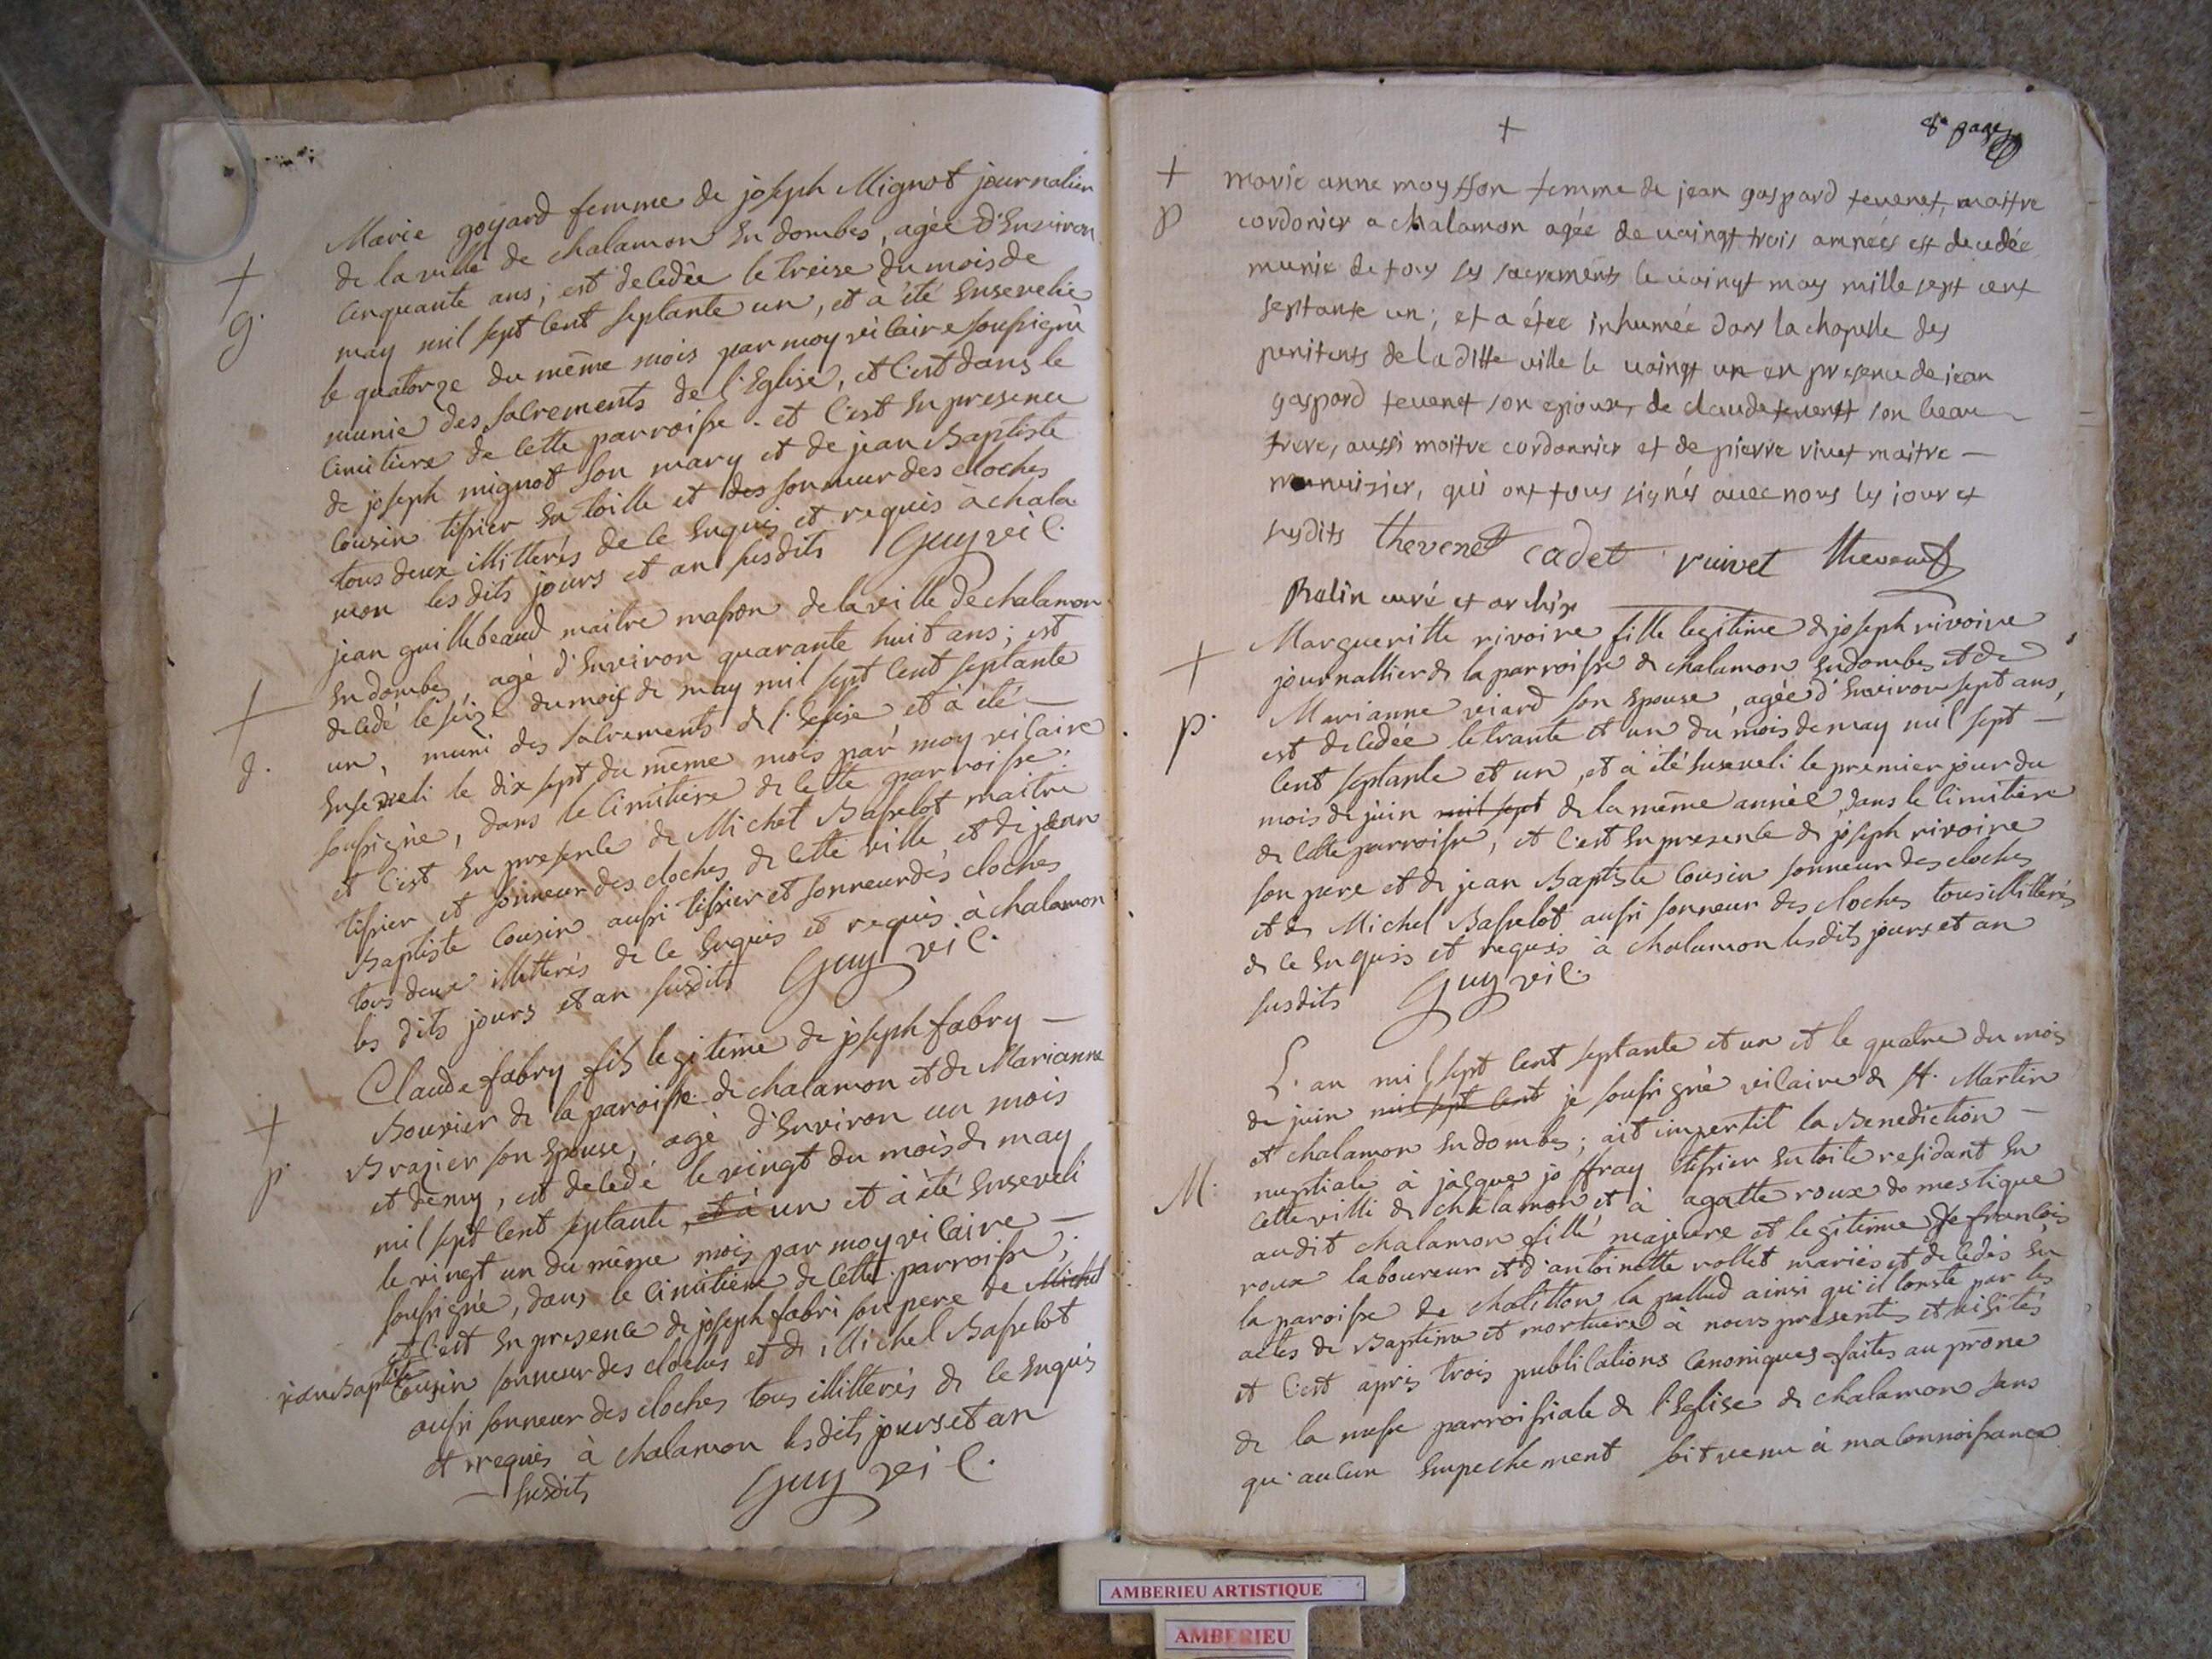 Marie goyard femme de joseph Mignot journalier
de la ville de chalamon En dombes, agée d'Environ
Cinquante ans; est decedée le treise du mois de
may mil sept cent septante un, et à été Ensevelie
le quatorze du même mois par moy vicaire soussigné
munie des sacrements de l'Eglise, et c'est dans le
Cimitiere de cette parroisse. et c'est En presence
de joseph mignot son mary et de jean Baptiste
Cousin tissier En toille et des sonneur des cloches
tous deux illitterés de ce Enquis et requis à chala
mon les dits jours et an susdits Guy vic.
jean guillebeaud maitre masson de la ville de chalamon
En dombes, agé d'Environ quarante huit ans; est
decedé le seize du mois de may mil sept cent septante
un, muni des sacrements de l'Eglise et à été
Enseveli le dix sept du même mois par moy vicaire
soussigné, dans le Cimitiere de cette parroisse:
et c'est En presence de Michel Basselot maitre
tissier et sonneur des cloches de cette ville, et de jean
Baptiste Cousin aussi tissier et sonneur des cloches
tous deux illitterés de ce Enquis et requis à chalamon
les dits jours et an susdits Guy vic.
Claude fabry fils legitime de joseph fabry
Bouvier de la paroisse de chalamon et de Marianne
Brazier son Epouse, agé d'Environ un mois
et demy, est decedé le vingt du mois de may
mil sept cent septante, et à un et à été Enseveli
le vingt un du même mois par moy vicaire
soussigné, dans le Cimitiere de cette parroisse;
et c'est En presence de joseph fabri son pere de Michel
jean Baptiste Cousin sonneur des cloches et de Michel Basselot
aussi sonneur des cloches tous illitterés de ce Enquis
et requis à chalamon les dits jours et an
susdits Guy vic.
+
g.
+
g.
+
p.
8e page
+
+
p
marie anne moysson femme de jean gaspard tevenet, maitre
cordonier a chalamon agée de vaingt trois années est decedée
munie de tous ses sacrements le vaingt may mille sept cent
septante un; et a étée inhumée dans la chapelle des
penitents de laditte ville le vaingt un en presence de jean
gaspard tevenet son epoux, de claude tevenet son beau
frere, aussi maitre cordonnier et de pierre vivet maitre
menuisier, qui ont tous signés avec nous les jour et
susdits thevenet cadet vuivet thevenet
Ralin curé et archip
+
p.
Margueritte rivoire fille legitime de joseph rivoire
journallier de la parroisse de chalamon En dombes et de
Marianne viard son Epouse, agée d'Environ sept ans,
est decedée le trante et un du mois de may mil sept
cent septante et un, et à été Enseveli le premier jour du
mois de juin mil sept de la même année, dans le Cimitiere
de cette parroisse, et c'est En presence de joseph rivoire
son pere et de jean Baptiste Cousin sonneur des cloches
et de Michel Basselot aussi sonneur des cloches tous illitterés
de ce Enquis et requis à chalamon les dits jours et an
susdits Guy vic.
M.
L'an mil sept cent septante et un et le quatre du mois
de juin mil sept cent je soussigné vicaire de St. Martin
et chalamon En dombes; ait impertit la Benediction
nuptiale à jacque joffray tissier En toile residant En
cette ville de chalamon et à agatte roux domestique
audit chalamon fille majeure et legitime de francois
roux laboureur et d'antoinette rollet mariés et decedés En
la paroisse de chatillon la pallud ainsi qu'il conste par les
actes de Baptême et mortuere à nous presentés et visités
et c'est après trois publications Canoniques faites au prone
de la messe parroissiale de l'Eglise de chalamon sans
qu'aucun Empechement soit venu à ma connoissance
AMBERIEU ARTISTIQUE
AMBERIEU